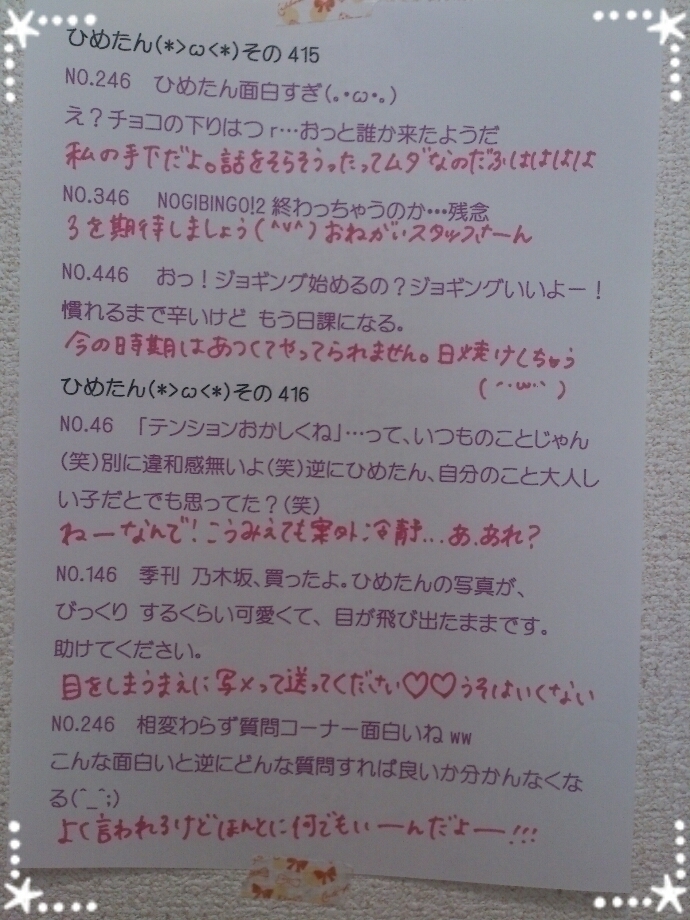 ひめたん(*>ω<*)その415
NO.246　ひめたん面白すぎ(｡･ω･｡)
え？チョコの下りはつr…おっと誰か来たようだ
私の手下だよ。話をそらそうったってムダなのだふはははは
NO.346　NOGIBINGO!2 終わっちゃうのか…残念
3を期待しましょう(^v^)おねがいスタッフさーん
NO.446　おっ！ジョギング始めるの？ジョギングいいよー！
慣れるまで辛いけど もう日課になる。
今の時期はあつくてやってられません。日焼けしちゃう
(´･ω･`)
ひめたん(*>ω<*)その416
NO.46　「テンションおかしくね」…って、いつものことじゃん
(笑)別に違和感無いよ(笑)逆にひめたん、自分のこと大人し
い子だとでも思ってた？(笑)
ねーなんで！こうみえても案外冷静...あ、あれ？
NO.146　季刊 乃木坂、買ったよ。ひめたんの写真が、
びっくり するくらい可愛くて、目が飛び出たままです。
助けてください。
目をしまうまえに写メって送ってください♡♡うそはいくない
NO.246　相変わらず質問コーナー面白いねww
こんな面白いと逆にどんな質問すれば良いか分かんなくな
る(^_^;)
よく言われるけどほんとに何でもいーんだよー!!!